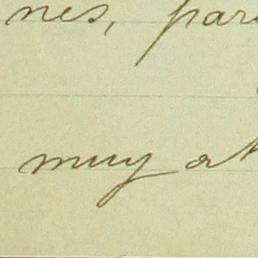 nes, par
muy at